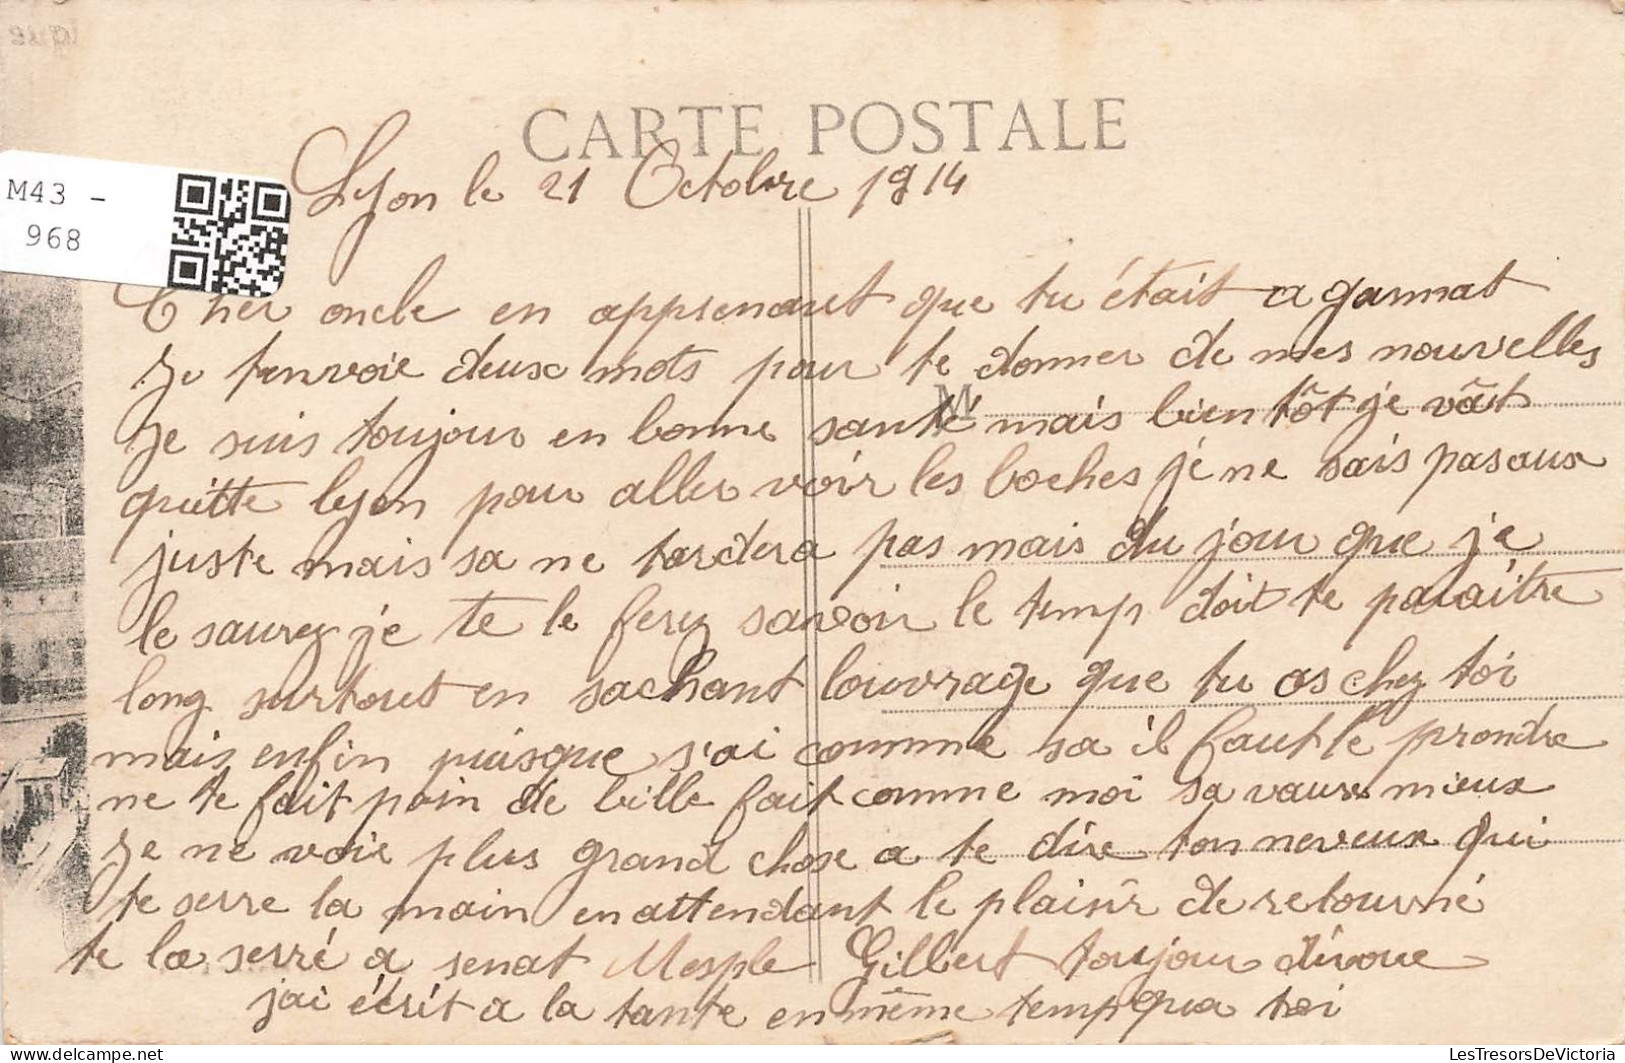 CARTE POSTALE
M43 -
968
Lyon le 21 Octobre 1914
Cher oncle en apprenant que tu était a gannat
Je tenvoie deux mots pour te donner de mes nouvelles
M
Je suis toujour en bonne santé mais bientôt je vât
quitte lyon pour aller voir les boches je ne sais pas aux
juste mais sa ne tardera pas mais du jour que je
le saurez je te le ferez savoir le temp doit te paraître
long surtout en sachant louvrage que tu as chez toi
mais enfin puisque s'ai comme sa il faut le prendre
ne te fait poin de bille fait comme moi sa vaux mieux
Je ne voie plus grand chose a te dire ton neveux qui
te serre la main en attendant le plaisir de retourné
te la serré a senat Mesple Gilbert toujour dévoue
jai écrit a la tante en même temp qua toi
LesTresorsDeVictoria
delcampe.net